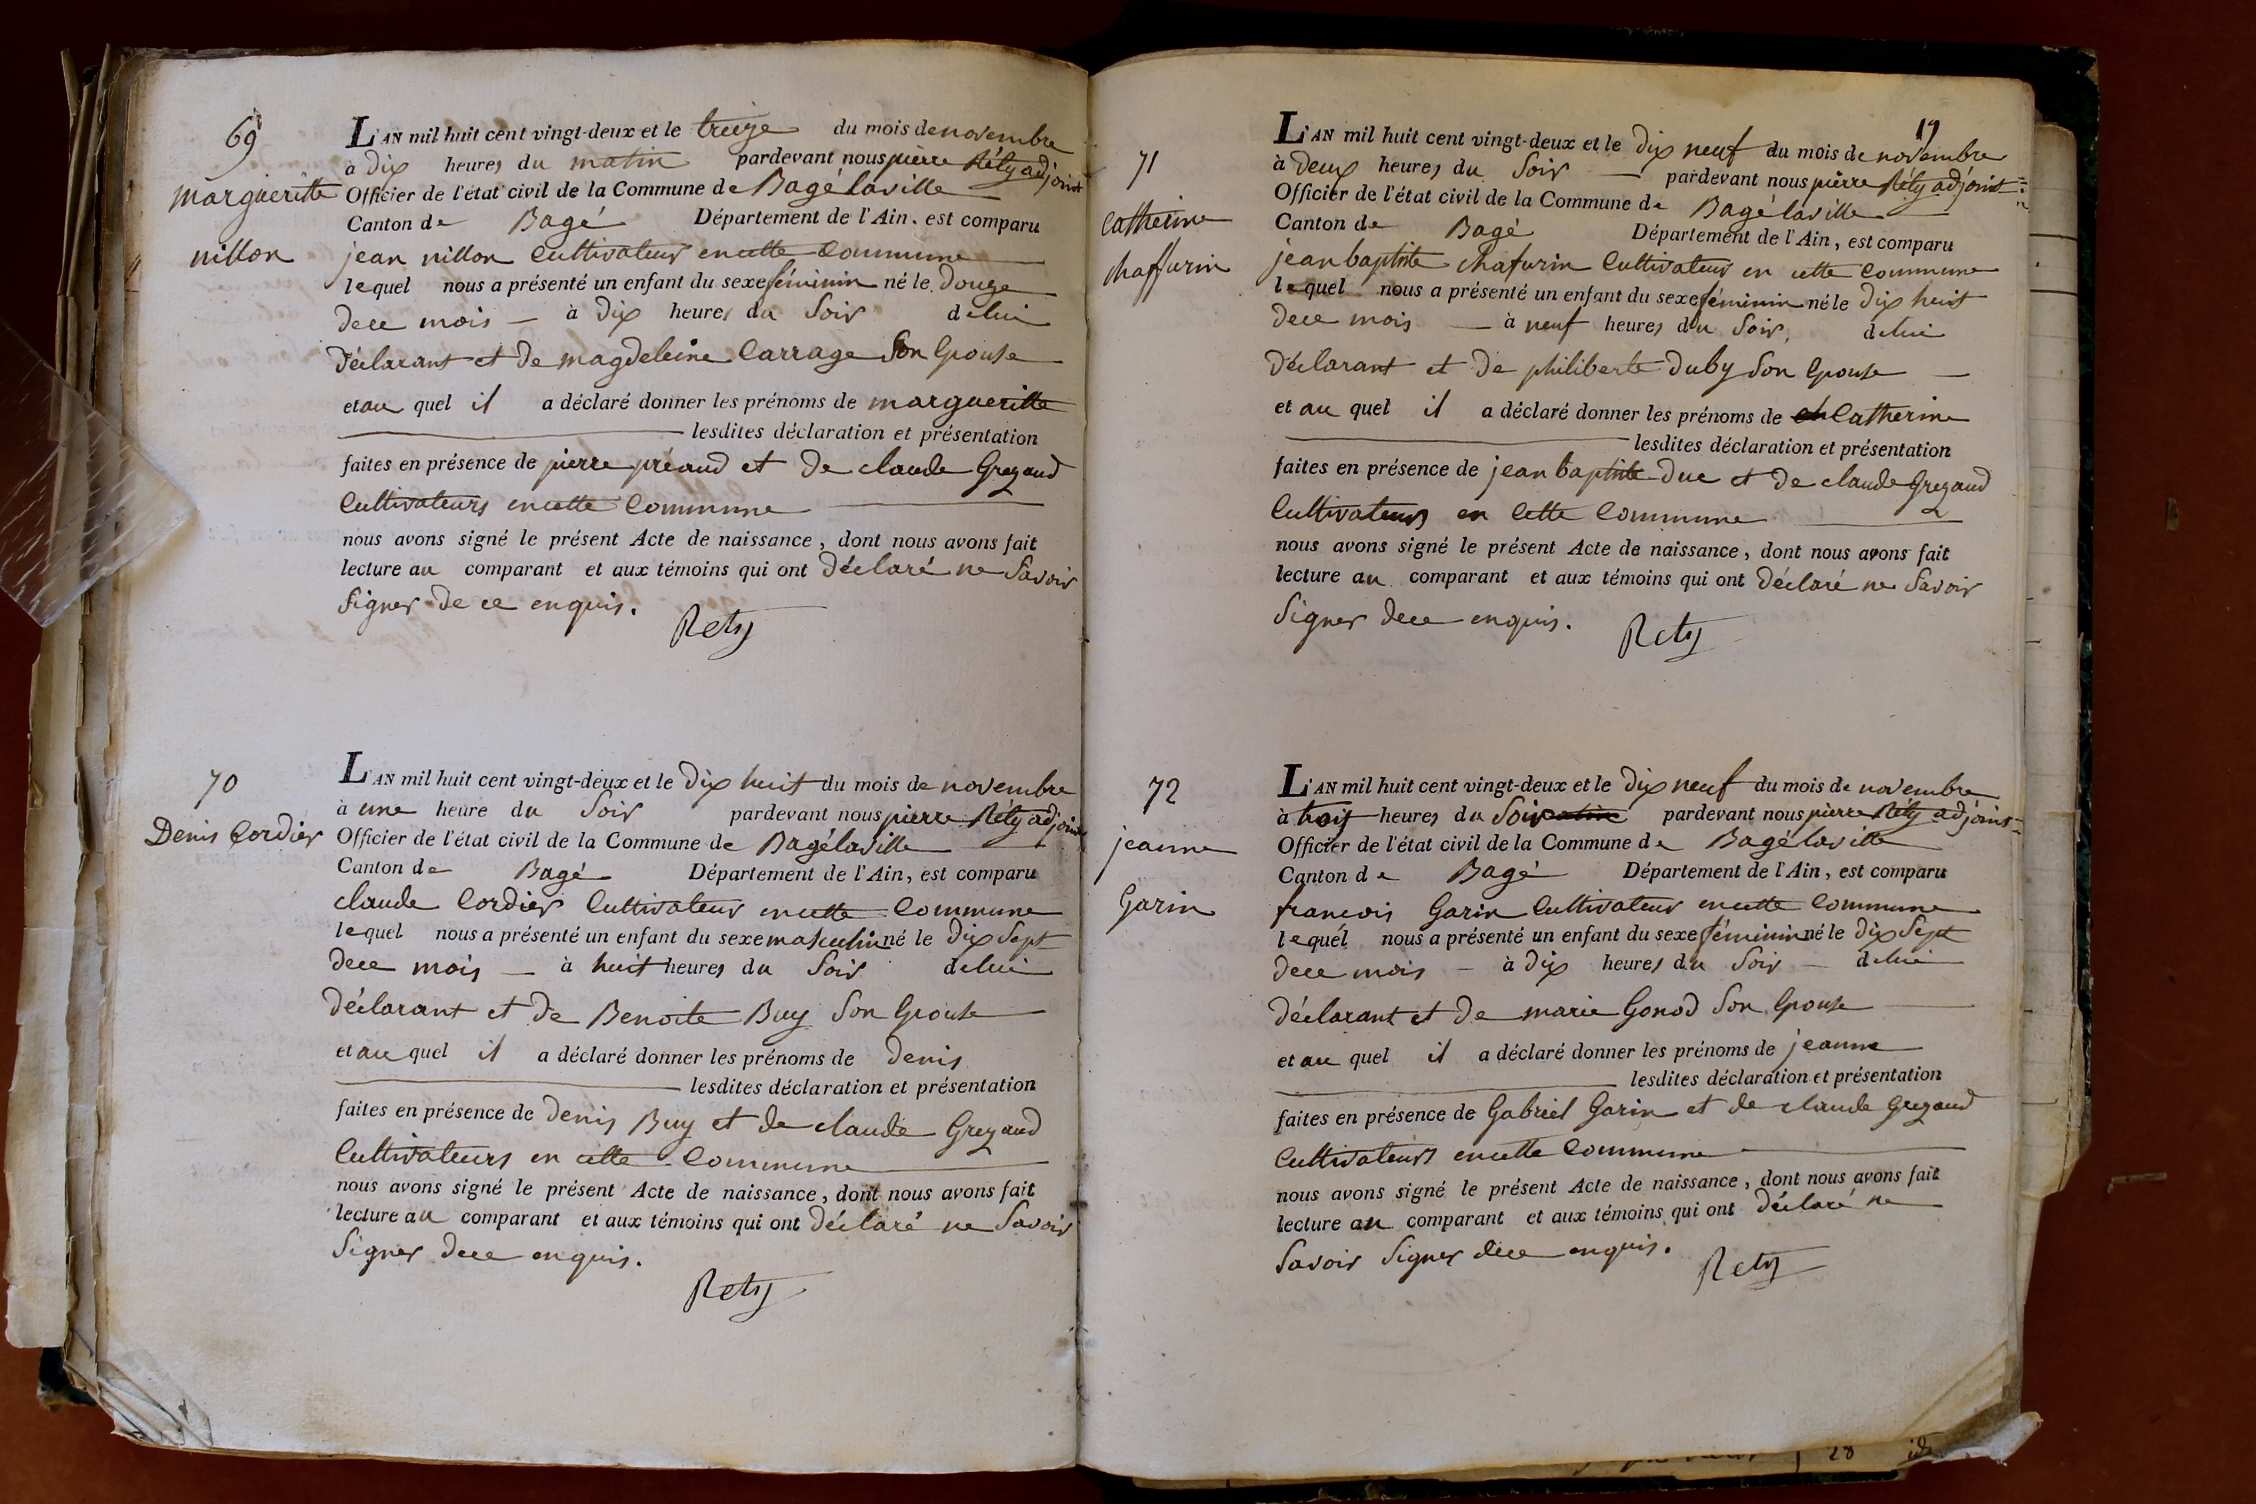 69
margueritte
nillon
L'AN mil huit cent vingt-deux et le treize du mois de novembre
à dix heures du matin pardevant nous pierre Réty adjoint
Officier de l'état civil de la Commune de Bagé laville
Canton de Bagé Département de l'Ain. est comparu
jean nillon Cultivateur en cette Commune
lequel nous a présenté un enfant du sexe féminin né le douze
de ce mois — à dix heures du soir de lui
Déclarant et de magdeleine Carrage Son Epouse
et au quel il a déclaré donner les prénoms de margueritte
lesdites déclaration et présentation
faites en présence de pierre préaud et de claude Grezaud
Cultivateurs en cette Commune
nous avons signé le présent Acte de naissance, dont nous avons fait
lecture au comparant et aux témoins qui ont Déclaré ne Savoir
Signer de ce enquis.
Rety
70
Denis Cordier
L'AN mil huit cent vingt-deux et le Dix huit du mois de novembre
à une heure du Soir pardevant nous pierre Réty adjoint
Officier de l'état civil de la Commune de Bagé laville
Canton de Bagé Département de l'Ain, est comparu
claude Cordier Cultivateur en cette Commune
lequel nous a présenté un enfant du sexe masculin né le Dix Sept
de ce mois — à huit heures du Soir de lui
Déclarant et de Benoite Buy Son Epouse
et au quel il a déclaré donner les prénoms de Denis
lesdites déclaration et présentation
faites en présence de Denis Buy et de claude Grezaud
Cultivateurs en cette Commune
nous avons signé le présent Acte de naissance, dont nous avons fait
lecture au comparant et aux témoins qui ont Déclaré ne Savoir
Signer de ce enquis.
Rety
19
71
Catherine
chaffurin
L'AN mil huit cent vingt-deux et le Dix neuf du mois de novembre
à Deux heures du Soir — pardevant nous pierre Réty adjoint
Officier de l'état civil de la Commune de Bagé laville
Canton de Bagé Département de l'Ain, est comparu
jean baptiste chafurin Cultivateur en cette Commune
lequel nous a présenté un enfant du sexe féminin né le Dix huit
de ce mois — à neuf heures du Soir, de lui
Déclarant et de philiberte Duby Son Epouse —
et au quel il a déclaré donner les prénoms de ch Catherine
lesdites déclaration et présentation
faites en présence de jean baptiste Duc et de claude Grezaud
Cultivateurs en Cette Commune
nous avons signé le présent Acte de naissance, dont nous avons fait
lecture au comparant et aux témoins qui ont Déclaré ne Savoir
Signer de ce enquis.
Rety
72
jeanne
Garin
L'AN mil huit cent vingt-deux et le Dix neuf du mois de novembre
à trois heures du Soir pardevant nous pierre Réty adjoint
Officier de l'état civil de la Commune de Bagé laville
Canton de Bagé Département de l'Ain, est comparu
françois Garin Cultivateur en cette Commune
lequel nous a présenté un enfant du sexe féminin né le Dix Sept
de ce mois — à dix heures du Soir — de lui
déclarant et de marie Gonod Son Epouse
et au quel il a déclaré donner les prénoms de jeanne
lesdites déclaration et présentation
faites en présence de Gabriel Garin et de claude Grezaud
Cultivateurs en cette Commune
nous avons signé le présent Acte de naissance, dont nous avons fait
lecture au comparant et aux témoins qui ont Déclaré ne
Savoir Signer de ce enquis.
Rety
28